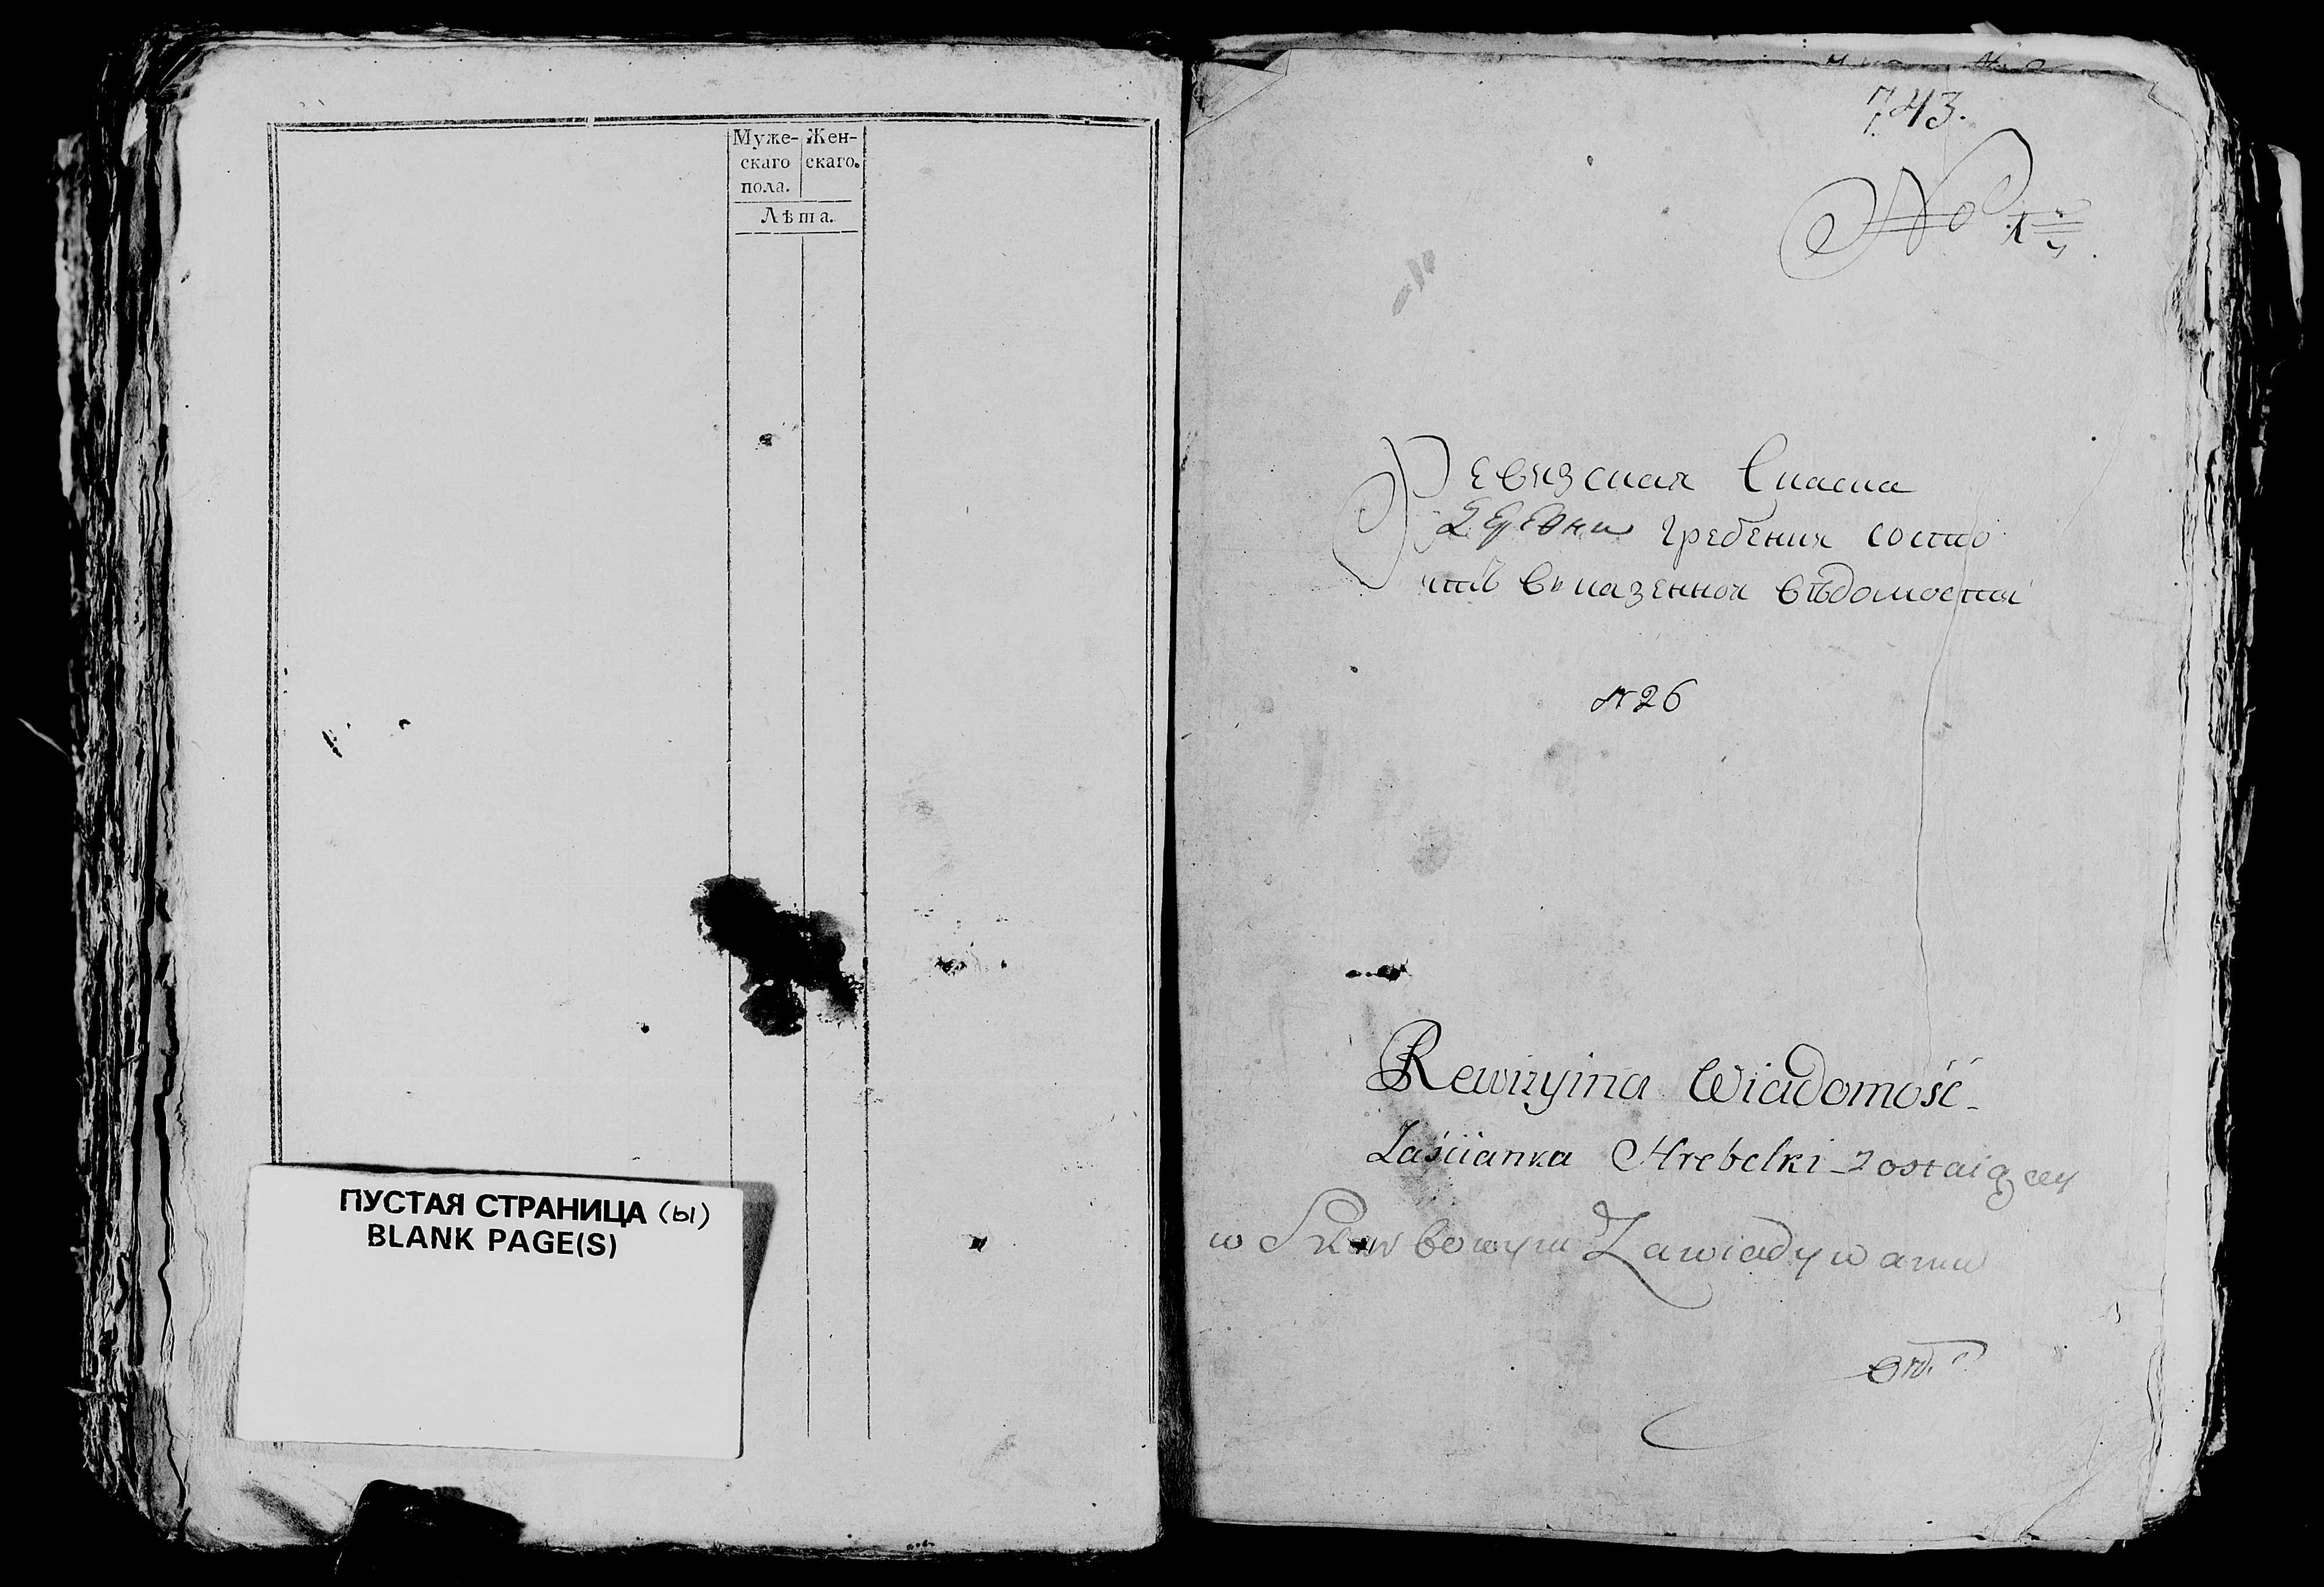 Муже- Жен-
скаго скаго.
пола.
Лѣта.
ПУСТАЯ СТРАНИЦА (ы)
BLANK PAGE(S)
743.
No
Ревизская Скаска
гребенки состо
итъ вказенной вѣдомости
N 26
Rewizyina Wiadomość
Zaścianka Hrebelki zostaiącey
w Skarbowym Zawiadywaniu